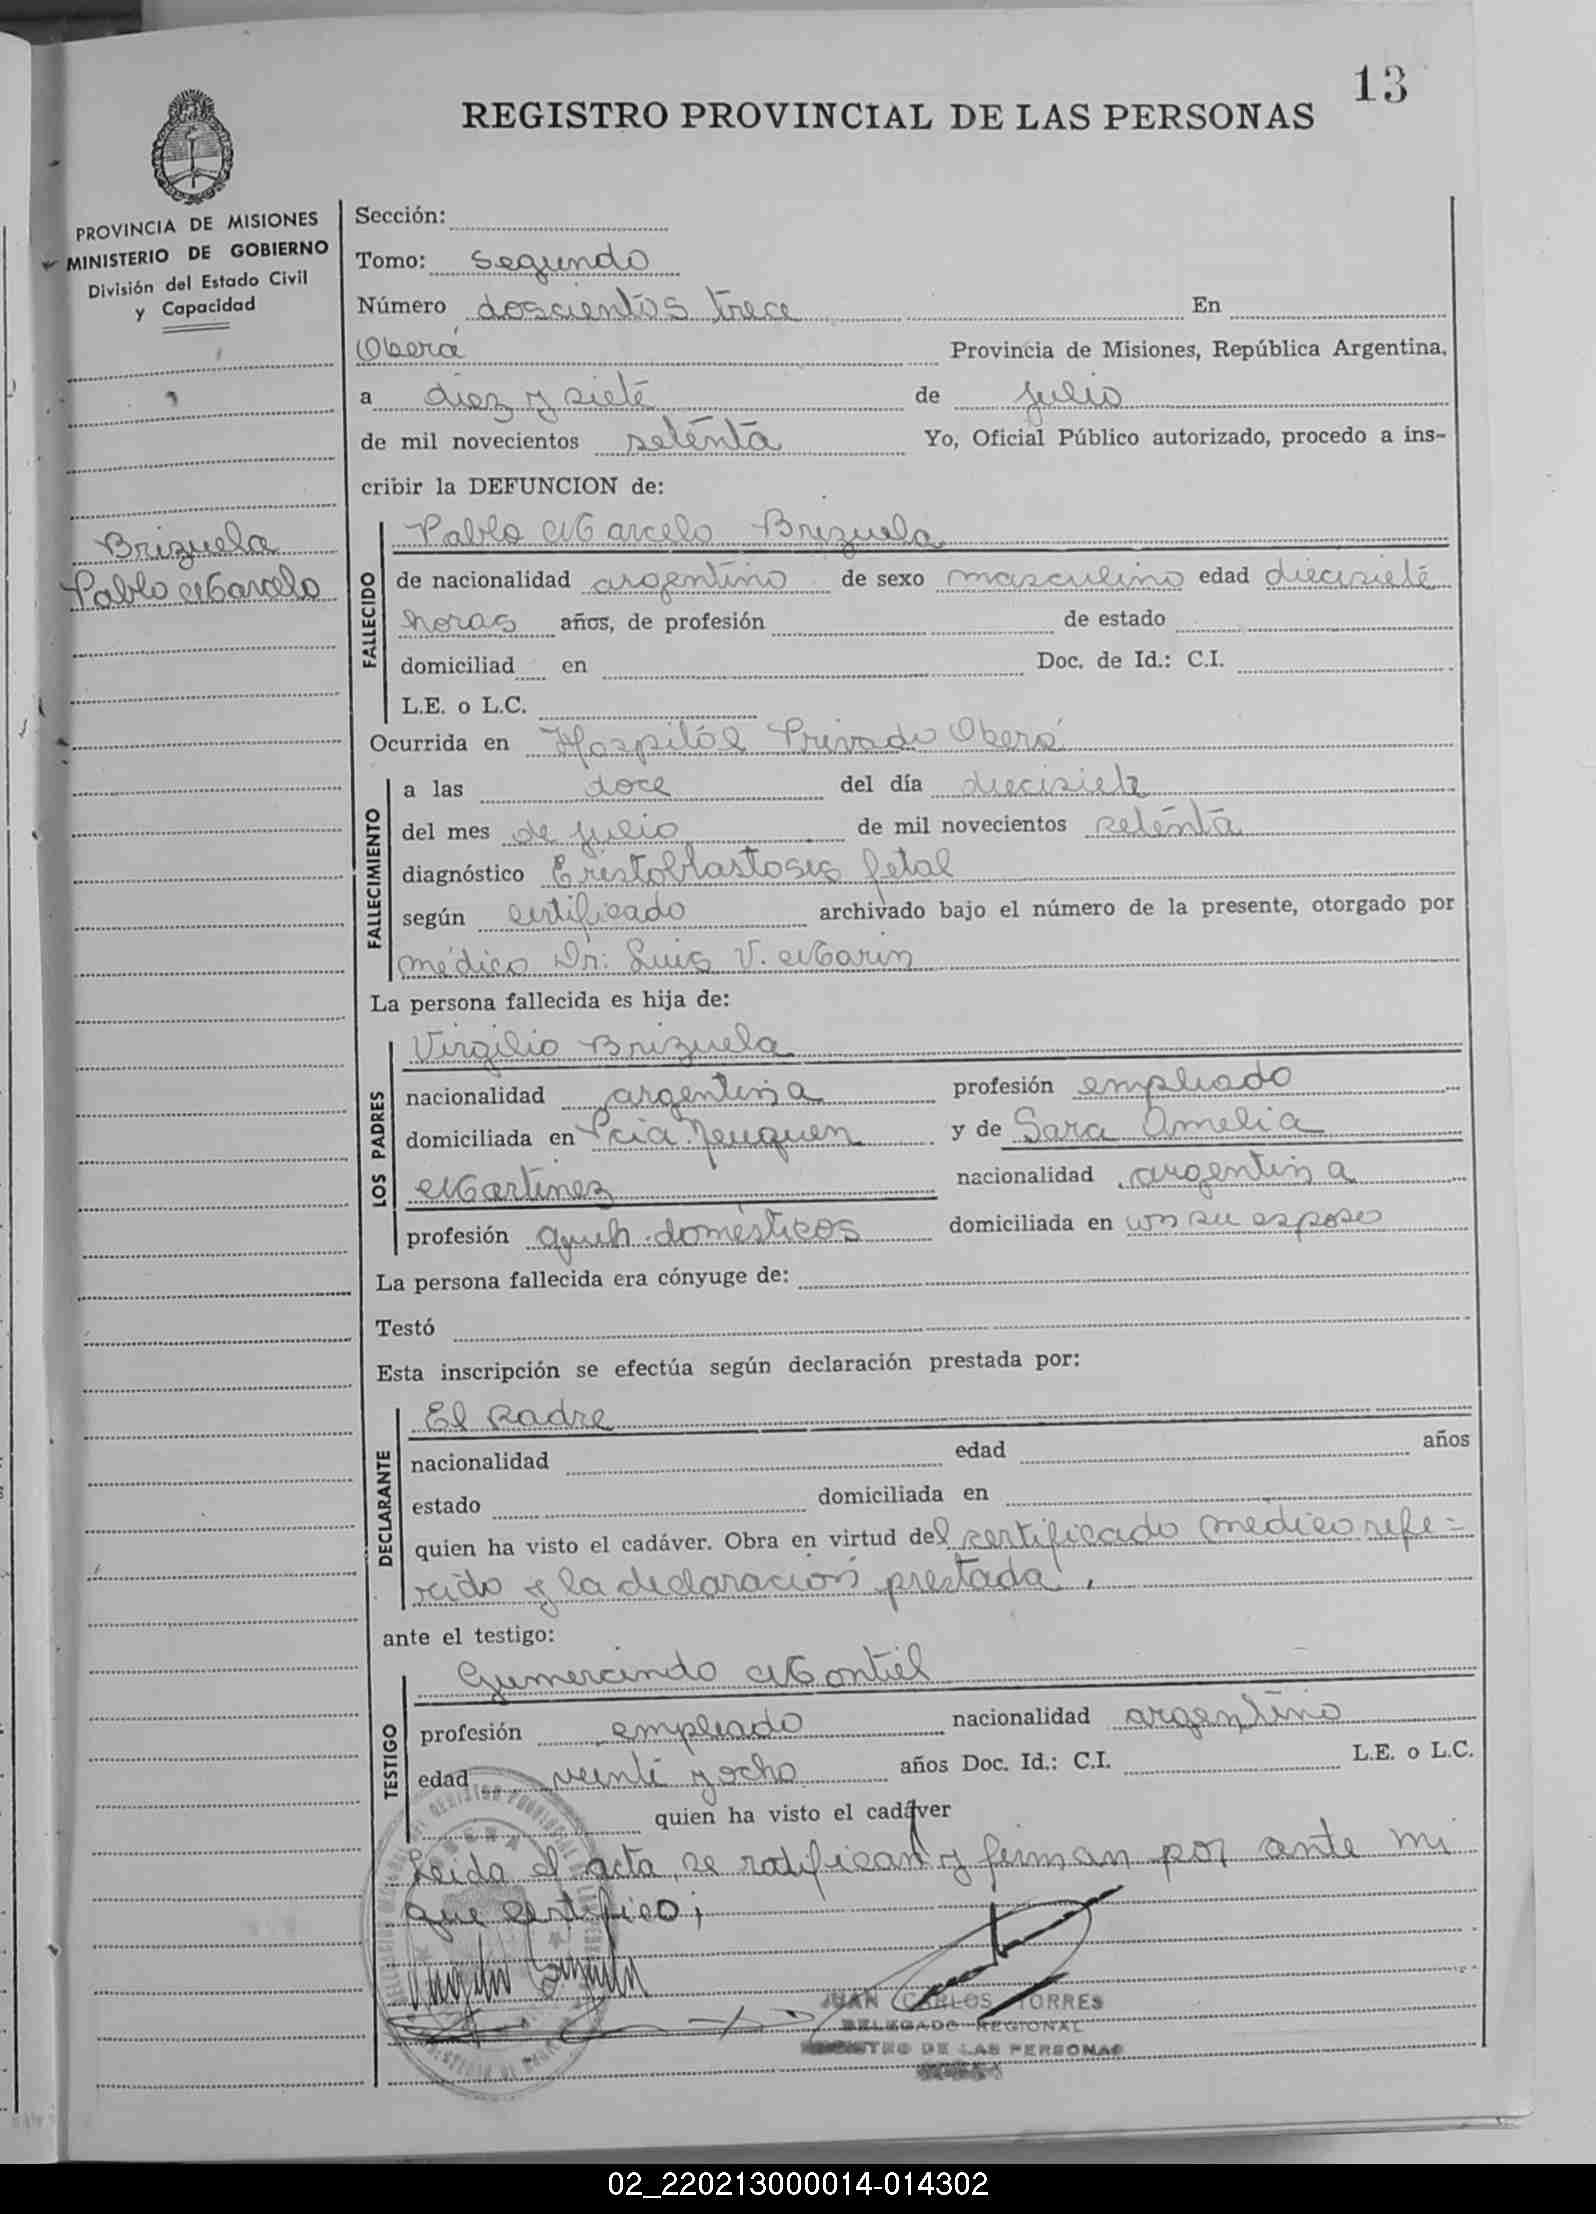 13
REGISTRO PROVINCIAL DE LAS PERSONAS
PROVINCIA DE MISIONES
MINISTERIO DE GOBIERNO
División del Estado Civil
y Capacidad
Brizuela
Pablo Marcelo
Sección:
Tomo: Segundo
Número doscientos trece En
Oberá Provincia de Misiones, República Argentina,
a diez y siete de julio
de mil novecientos setenta Yo, Oficial Público autorizado, procedo a ins-
cribir la DEFUNCION de:
FALLECIDO
Pablo Marcelo Brizuela
de nacionalidad argentino de sexo masculino edad diecisiete
horas años, de profesión de estado
domiciliad en Doc. de Id.: C.I.
L.E. o L.C.
Ocurrida en Hospital Privado Oberá
FALLECIMIENTO
a las doce del día diecisiete
del mes de julio de mil novecientos setenta
diagnóstico Eristoblastosis fetal
según certificado archivado bajo el número de la presente, otorgado por
médico Dr: Luis V. Marin
La persona fallecida es hija de:
LOS PADRES
Virgilio Brizuela
nacionalidad argentina profesión empleado
domiciliada en Pcia. Neuquen y de Sara Amelia
Martinez nacionalidad argentina
profesión queh. domésticos domiciliada en con su esposo
La persona fallecida era cónyuge de:
Testó
Esta inscripción se efectúa según declaración prestada por:
DECLARANTE
El Padre
nacionalidad edad años
estado domiciliada en
quien ha visto el cadáver. Obra en virtud del certificado médico refe=
rido y la declaración prestada.
ante el testigo:
TESTIGO
Gumercindo Montiel
profesión empleado nacionalidad argentino
edad veinte y ocho años Doc. Id.: C.I. L.E. o L.C.
quien ha visto el cadáver
Leida el acta, se ratifican y firman por ante mi
que certifico;
JUAN CARLOS TORRES
DELEGADO REGIONAL
REGISTRO DE LAS PERSONAS
02_220213000014-014302